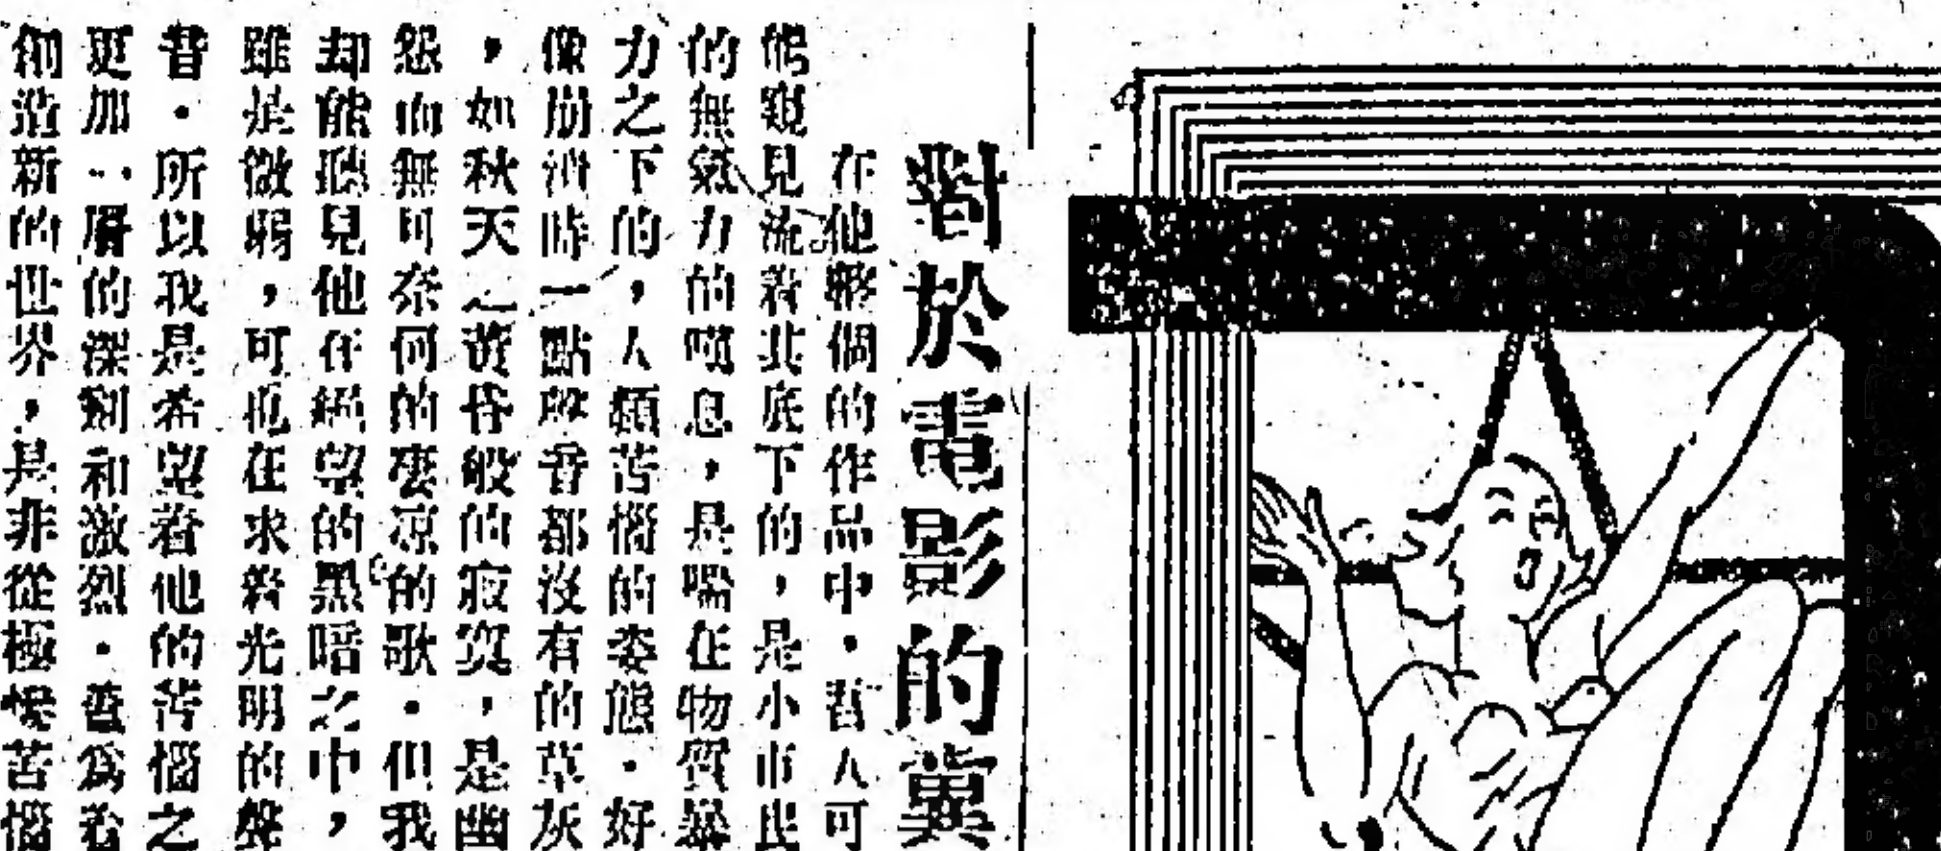 對於電影的冀
在他整個的作品中．吾人可
能窺見流着其底下的，是小市民
的無氣力的嘆息，是喘在物質暴
力之下的，人類苦惱的姿態．好
像崩潰時一點聲音都沒有的草灰
，如秋天〜黃昏般的寂寞，是幽
怨而無可奈何的凄涼的歌．但我
却能聽見他在絕望的黑暗之中，
雖是微弱，可也在求着光明的聲
音．所以我是希望着他的苦惱之
更加一層的深刻和激烈．蓋爲着
創造新的世界，是非從極慘苦惱